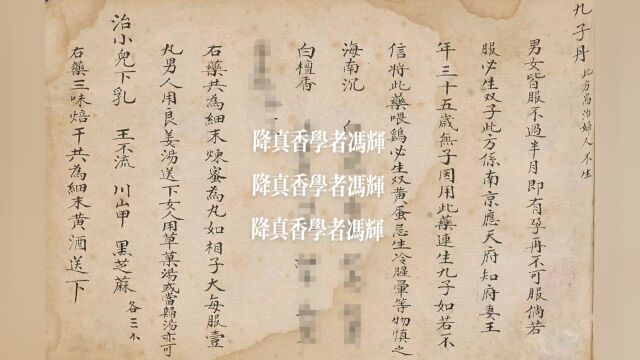 九子丹 此方當治婦人不生
男女皆服不過半月即有孕再不可服倘若
服必生双子此方係南京應天府知府妻王
年三十五歲無子因用此藥連生九子如若不
信將此藥喂鷄必生双黃蛋忌生冷腥葷等物慎之
海南沉
白檀香
右藥共為細末煉蜜為丸如相子大每服壹
丸男人用良姜湯送下女人用草菓湯或當歸湯亦可
治小兒下乳 王不流 川山甲 黑芝蔴 各三
右藥三味焙干共為細末黃酒送下
降真香學者馮輝
降真香學者馮輝
降真香學者馮輝